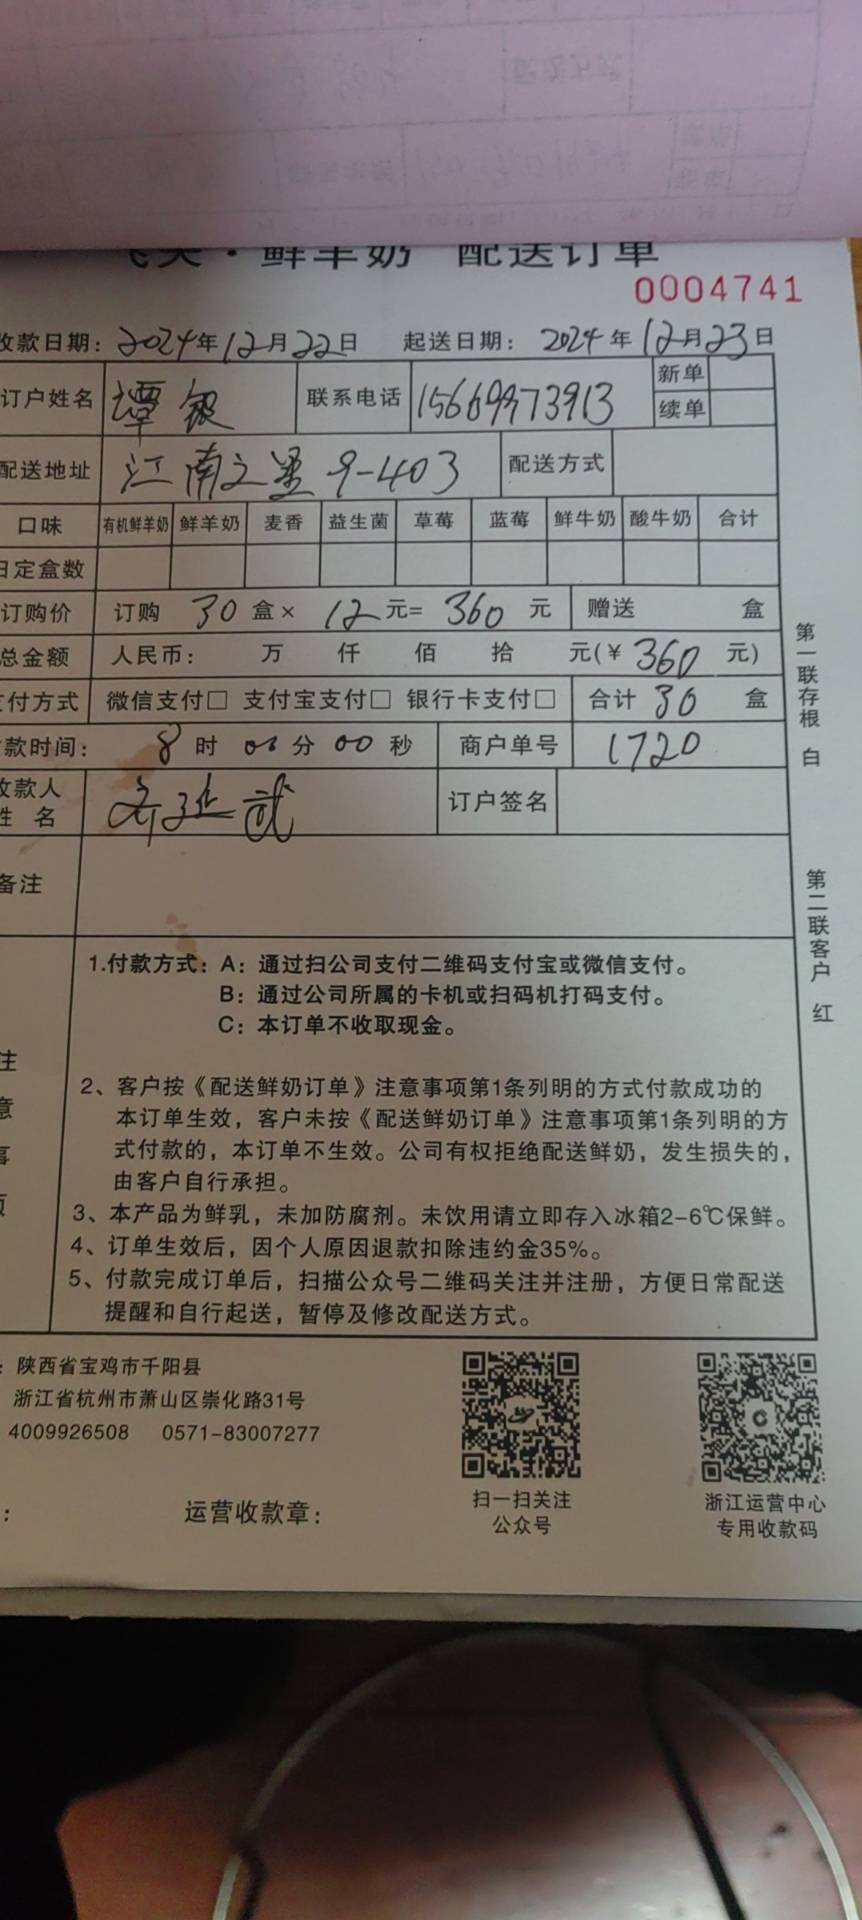 ·鲜羊奶 配送订单
0004741
收款日期：2024年12月22日 起送日期：2024年12月23日
订户姓名 谭银 联系电话 15669973913 新单
续单
配送地址 江南之星 9-403 配送方式
口味 有机鲜羊奶 鲜羊奶 麦香 益生菌 草莓 蓝莓 鲜牛奶 酸牛奶 合计
日定盒数
订购价 订购 30 盒× 12 元= 360 元 赠送 盒
总金额 人民币： 万 仟 佰 拾 元(¥ 360 元)
支付方式 微信支付□ 支付宝支付□ 银行卡支付□ 合计 30 盒
款时间： 8 时 分 00 秒 商户单号 1720
收款人
姓 名 订户签名
备注
第一联存根 白
第二联客户 红
注意事项
1.付款方式：A：通过扫公司支付二维码支付宝或微信支付。
B：通过公司所属的卡机或扫码机打码支付。
C：本订单不收取现金。
2、客户按《配送鲜奶订单》注意事项第1条列明的方式付款成功的
本订单生效，客户未按《配送鲜奶订单》注意事项第1条列明的方
式付款的，本订单不生效。公司有权拒绝配送鲜奶，发生损失的，
由客户自行承担。
3、本产品为鲜乳，未加防腐剂。未饮用请立即存入冰箱2-6℃保鲜。
4、订单生效后，因个人原因退款扣除违约金35%。
5、付款完成订单后，扫描公众号二维码关注并注册，方便日常配送
提醒和自行起送，暂停及修改配送方式。
：陕西省宝鸡市千阳县
浙江省杭州市萧山区崇化路31号
4009926508 0571-83007277
： 运营收款章：
扫一扫关注
公众号
浙江运营中心
专用收款码